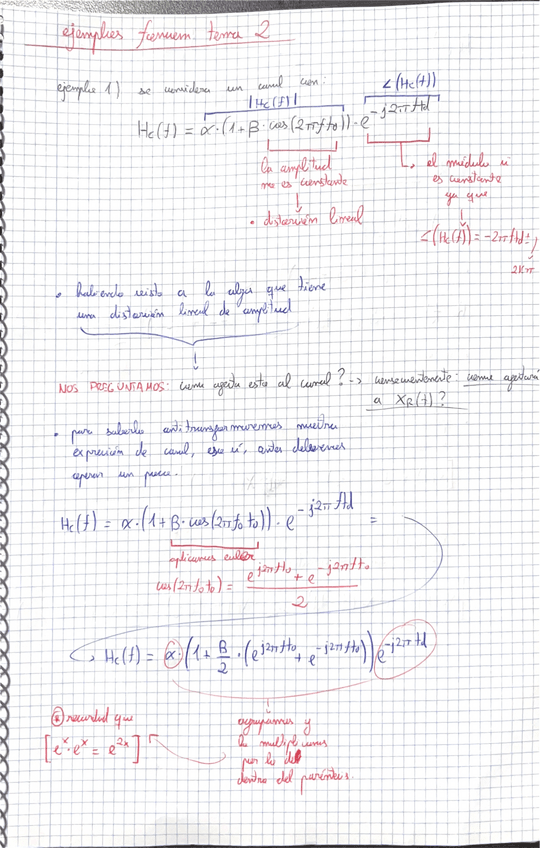 ejemplos fenuem. tema 2
ejemplo 1) se considera un canal con:
|Hc(f)|
∠(Hc(f))
Hc(f) = α·(1+β·cos(2πft₀))·e^{-j2πftd}
la amplitud
no es constante
↓
• distorsión lineal
↳ el módulo si
es constante
ya que
↓
∠(Hc(f)) = -2πftd
2kπ
• habiendo visto a lo largo que tiene
una distorsión lineal de amplitud
↓
NOS PREGUNTAMOS: como afecta esto al canal? -> consecuentemente: como afectará
a X_R(f)?
• para saberlo antitransformaremos nuestra
expresión de canal, eso sí, antes deberemos
operar un poco.
Hc(f) = α·(1+β·cos(2πf₀t₀))·e^{-j2πftd} =
aplicamos euler
cos(2πf₀t₀) = (e^{j2πft₀} + e^{-j2πft₀})/2
↳ Hc(f) = α·(1+β/2·(e^{j2πft₀} + e^{-j2πft₀}))e^{-j2πftd}
⊛ recordad que
[e^x·e^x = e^{2x}]
agrupamos y
lo multiplicamos
por lo de
dentro del paréntesis.